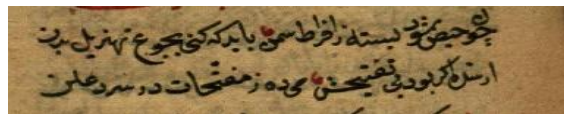 چو حیض شود بسته ز افراط سمن باید که کنی بجوع تهزیل بدن
ار سده اگر بود پی تفتیحش میده ز مفتحات در سر و علن